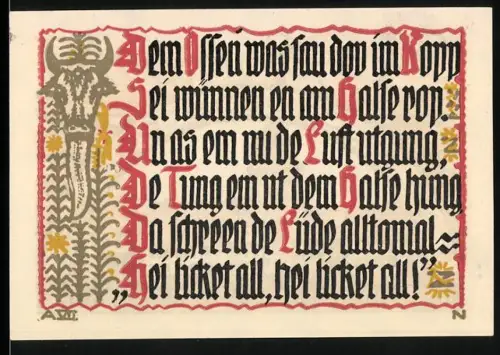 Dem Ossen was sau dov im Kopp
Sei wünnen en am Halse rop.
Un as em nu de Luft utgung,
De Tung em ut dem Halse hung,
Da schreen de Lüde alltomal ≈
„Hei licket all, hei licket all!”
A VII N